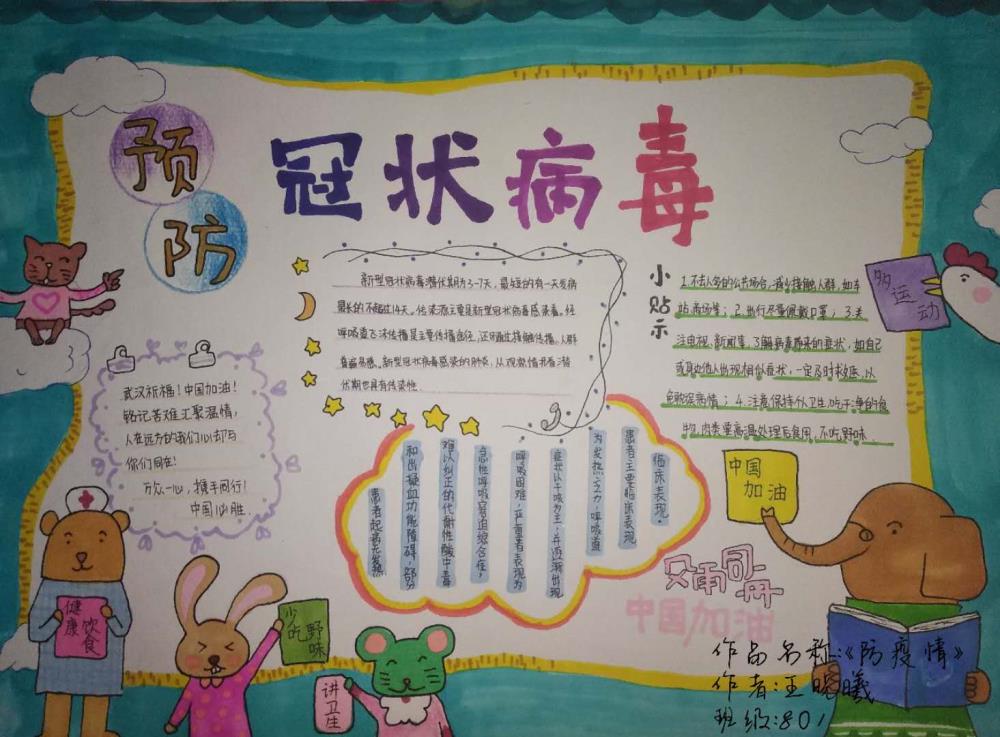 预
防
冠状病毒
新型冠状病毒潜伏期为3-7天,最短的有一天发病
最长的不超过14天,传染源主要是新型冠状病毒感染者,经
呼吸道飞沫传播是主要传播途径,还可通过接触传播,人群
普遍易感,新型冠状病毒感染的肺炎,从观察情况看潜
伏期也具有传染性.
小贴示
1.不去人多的公共场合,减少接触人群,如车
站商场等;2.出行尽量佩戴口罩;3.关
注电视,新闻等,了解病毒带来的症状,如自己
或身边他人出现相似症状,一定及时救医,以
免耽误病情;4.注意保持个人卫生,吃干净的食
物,肉类要高温处理后食用,不吃野味.
多运动
武汉祈福!中国加油!
铭记苦难汇聚温情,
人在远方的我们心却与
你们同在!
万众一心,携手同行!
中国必胜
临床表现·
患者主要临床表现
为发热乏力,呼吸道
症状以干咳为主,并逐渐出现
呼吸困难,严重者表现为
急性呼吸窘迫综合征,
难以纠正的代谢性酸中毒
和出凝血功能障碍,部分
患者起病无发热
中国
加油
风雨同舟
中国加油
健康
饮食
少吃
野味
讲卫生
作品名称:《防疫情》
作者:王晓曦
班级:801